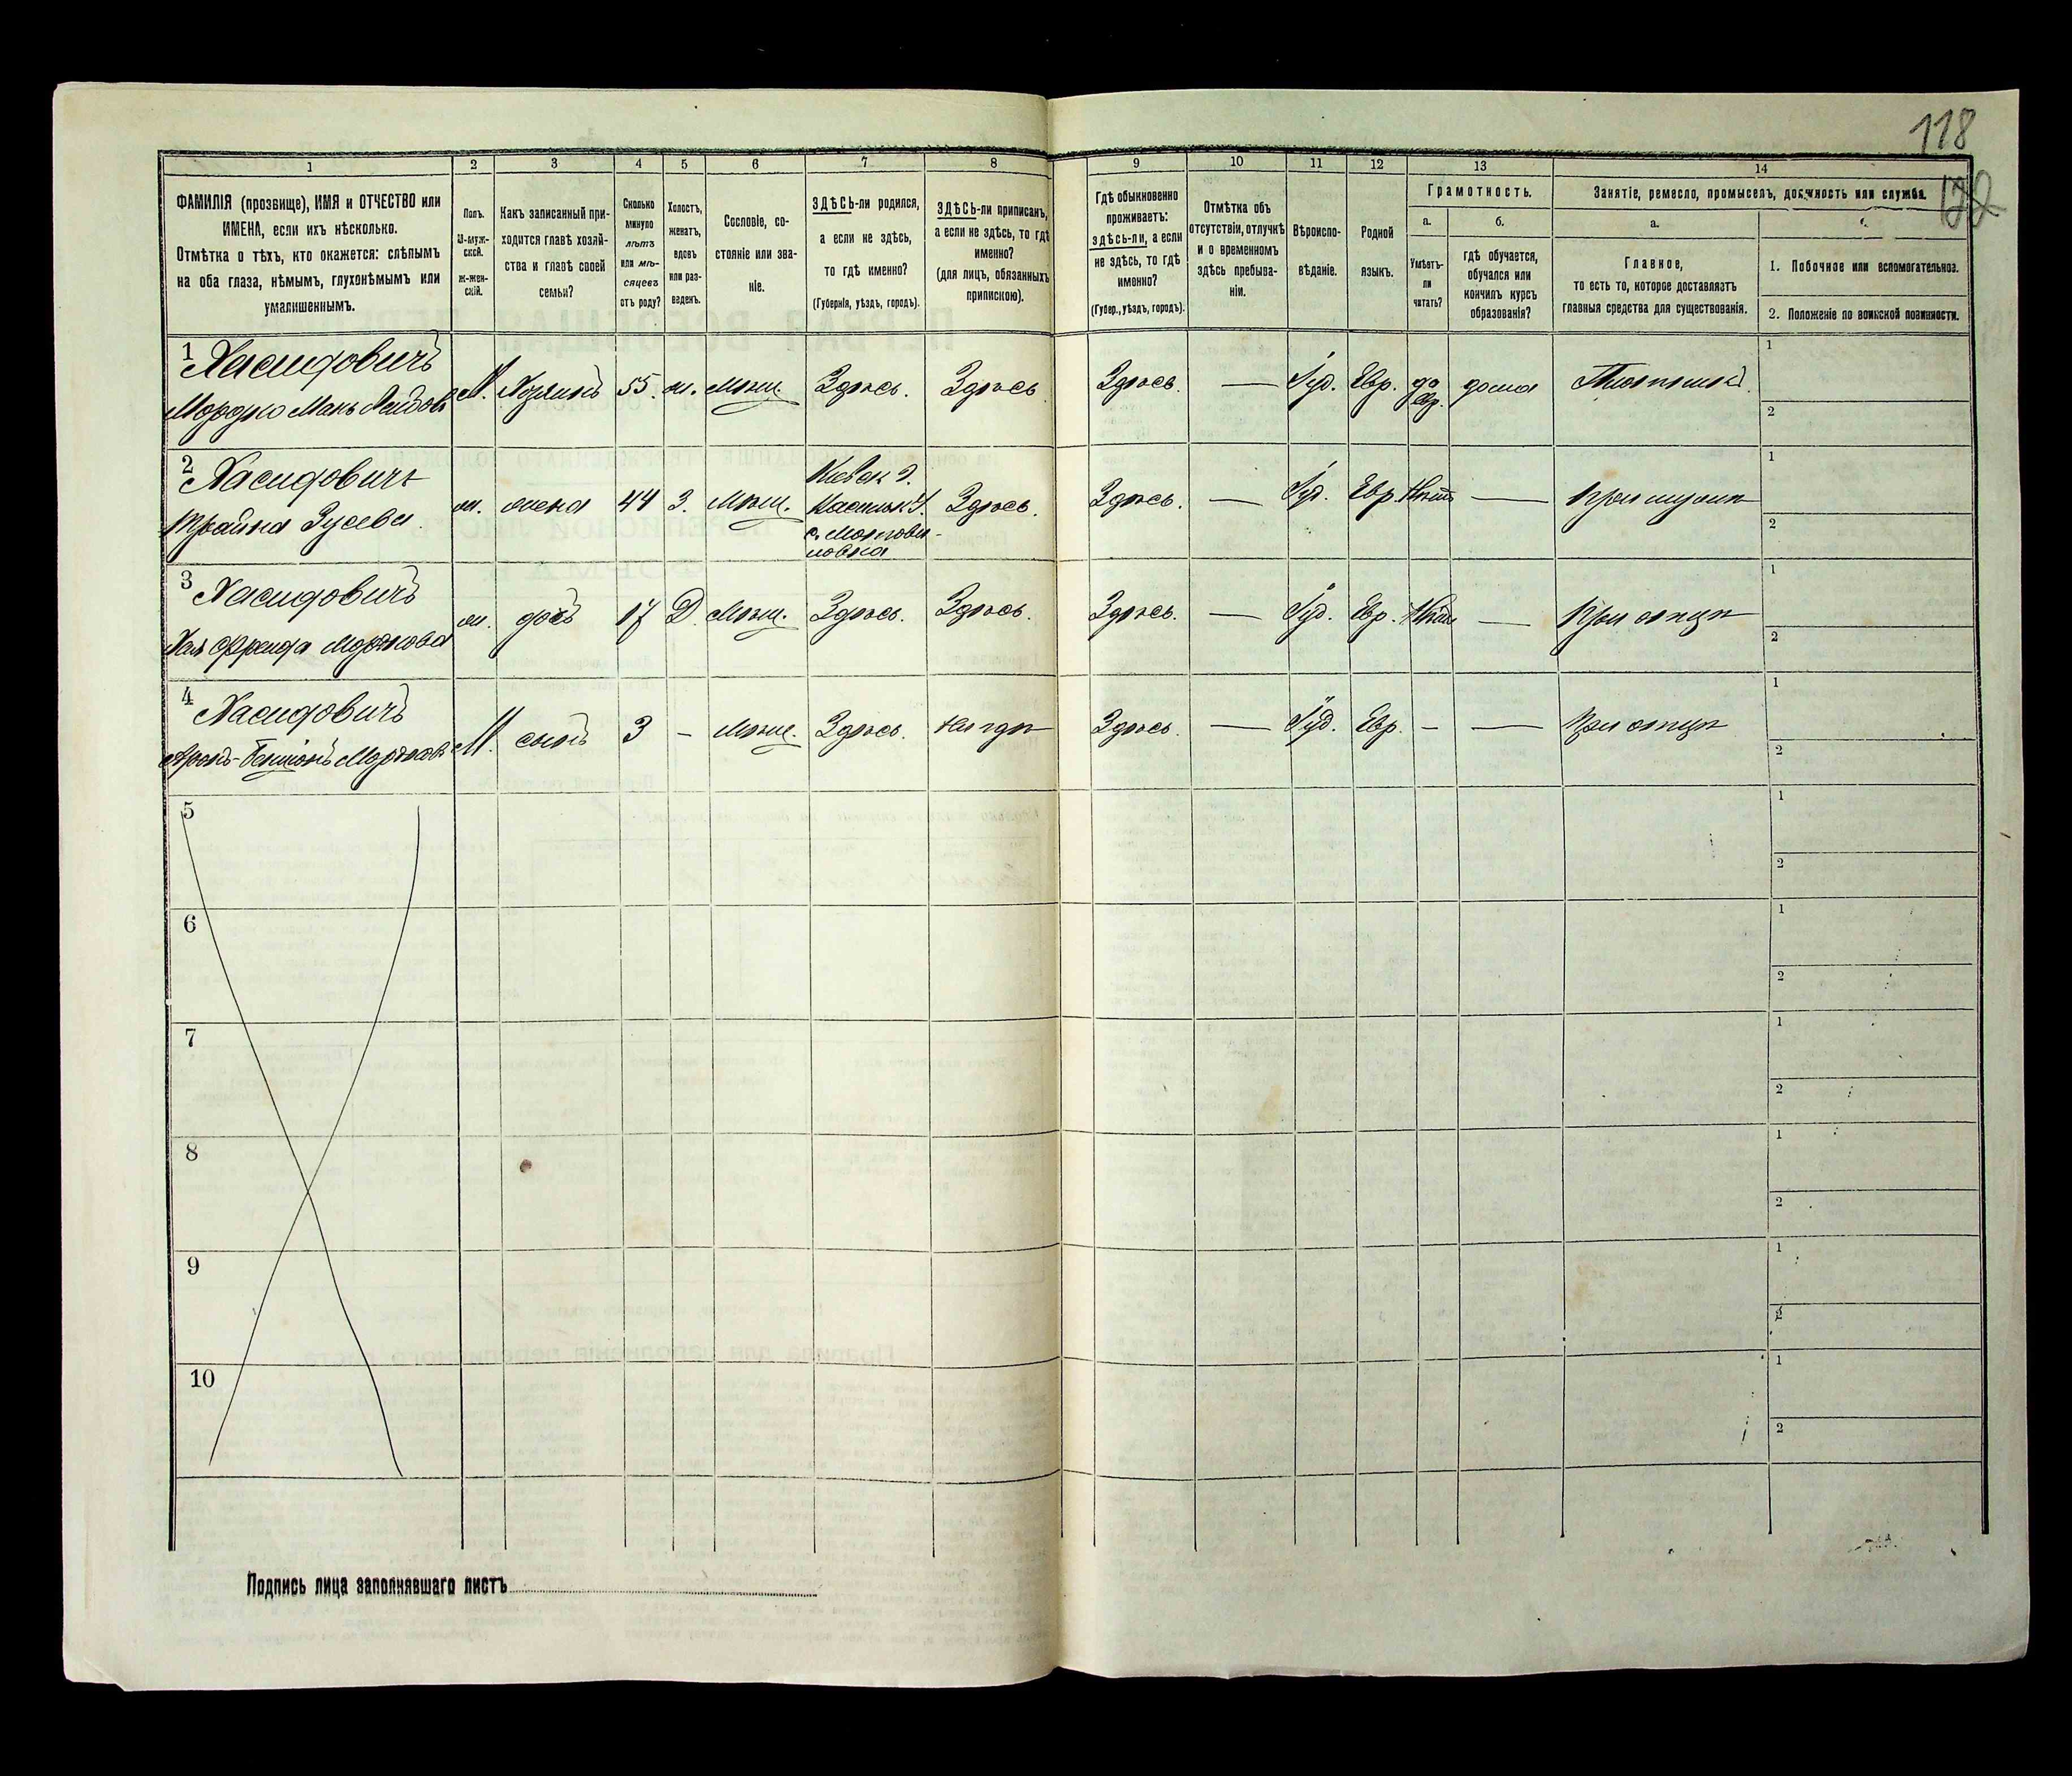 118
122
1 2 3 4 5 6 7 8 9 10 11 12 13 14
ФАМИЛІЯ (прозвище), ИМЯ и ОТЧЕСТВО или
ИМЕНА, если ихъ нѣсколько.
Отмѣтка о тѣхъ, кто окажется: слѣпымъ
на оба глаза, нѣмымъ, глухонѣмымъ или
умалишеннымъ.
Полъ.
М-муж-
ской.
ж-жен-
скій.
Какъ записанный при-
ходится главѣ хозяй-
ства и главѣ своей
семьи?
Сколько
минуло
лѣтъ
или мѣ-
сяцевъ
отъ роду?
Холостъ,
женатъ,
вдовъ
или раз-
веденъ.
Сословіе, со-
стояніе или зва-
ніе.
ЗДѢСЬ-ли родился,
а если не здѣсь,
то гдѣ именно?
(Губернія, уѣздъ, городъ).
ЗДѢСЬ-ли приписанъ,
а если не здѣсь, то гдѣ
именно?
(для лицъ, обязанныхъ
припискою).
Гдѣ обыкновенно
проживаетъ:
здѣсь-ли, а если
не здѣсь, то гдѣ
именно?
(Губер., уѣздъ, городъ).
Отмѣтка объ
отсутствіи, отлучкѣ
и о временномъ
здѣсь пребыва-
ніи.
Вѣроиспо-
вѣданіе.
Родной
языкъ.
Грамотность.
а.
Умѣетъ-
ли
читать?
б.
гдѣ обучается,
обучался или
кончилъ курсъ
образованія?
Занятіе, ремесло, промыселъ, должность или служба.
а.
Главное,
то есть то, которое доставляетъ
главныя средства для существованія.
1. Побочное или вспомогательное.
2. Положеніе по воинской повинности.
1 Хасидовичъ
Мордко
М. Хозяинъ 55 ж. Мѣщ. Здѣсь. Здѣсь Здѣсь. — Іуд. Евр. да дома
евр.
1
2
2 Хасидовичъ
Трайна Зусева
ж. жена 44 З. Мѣщ.
Кіевск г.
Васильк У.
с. Мотови-
ловка
Здѣсь. Здѣсь. — Іуд. Евр. Нѣтъ — При мужѣ
1
2
3 Хасидовичъ
Хая Фрейда Мордкова
ж. дочь 17 Д. Мѣщ. Здѣсь. Здѣсь. Здѣсь. — Іуд. Евр. Нѣтъ — При отцѣ
1
2
4 Хасидовичъ
Аронъ-Бенціонъ Мордковъ
М. сынъ 3 — Мѣщ. Здѣсь. Нигдѣ Здѣсь. — Іуд. Евр. — — При отцѣ
1
2
5
1
2
6
1
2
7
1
2
8
1
2
9
1
2
10
1
2
Подпись лица заполнявшаго листъ